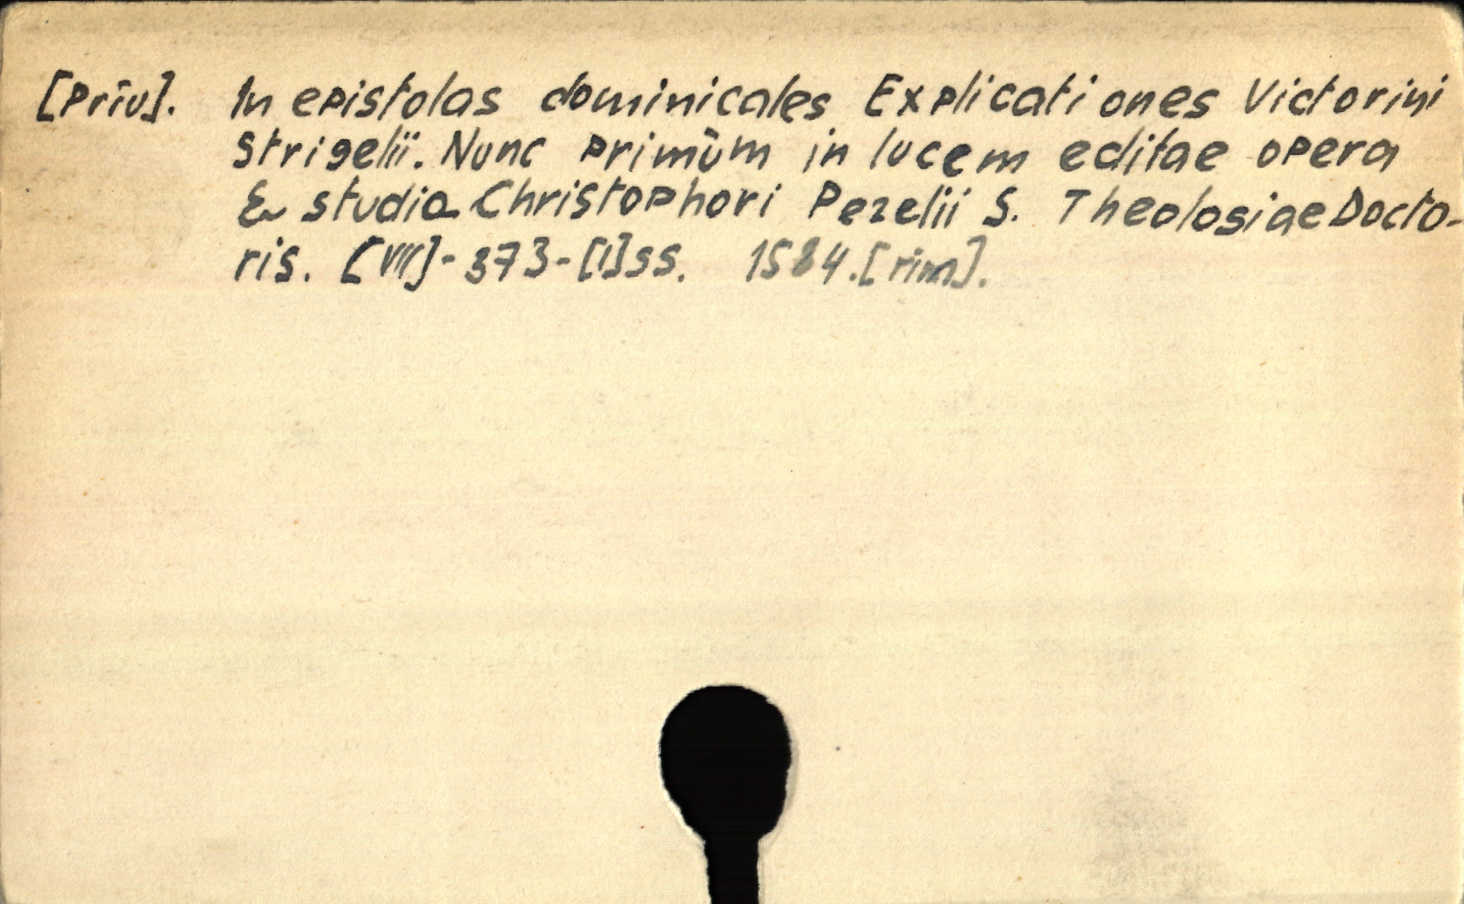 [Priv]. In epistolas dominicales Explicationes Victorini
Strigelii. Nunc primùm in lucem editae opera
& studio Christophori Pezelii S. Theologiae Docto-
ris. [VII]-373-[1]ss. 1584.[rim].